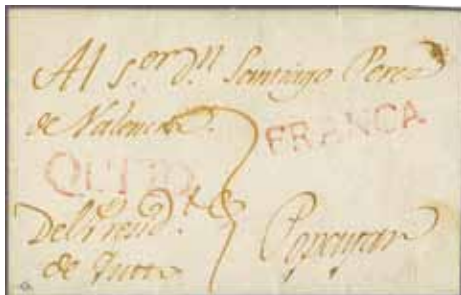 Al S.or D.n Santiago Perez
de Valencia.
FRANCA
QUITO
Del Presid.te
de Quito
Popayan